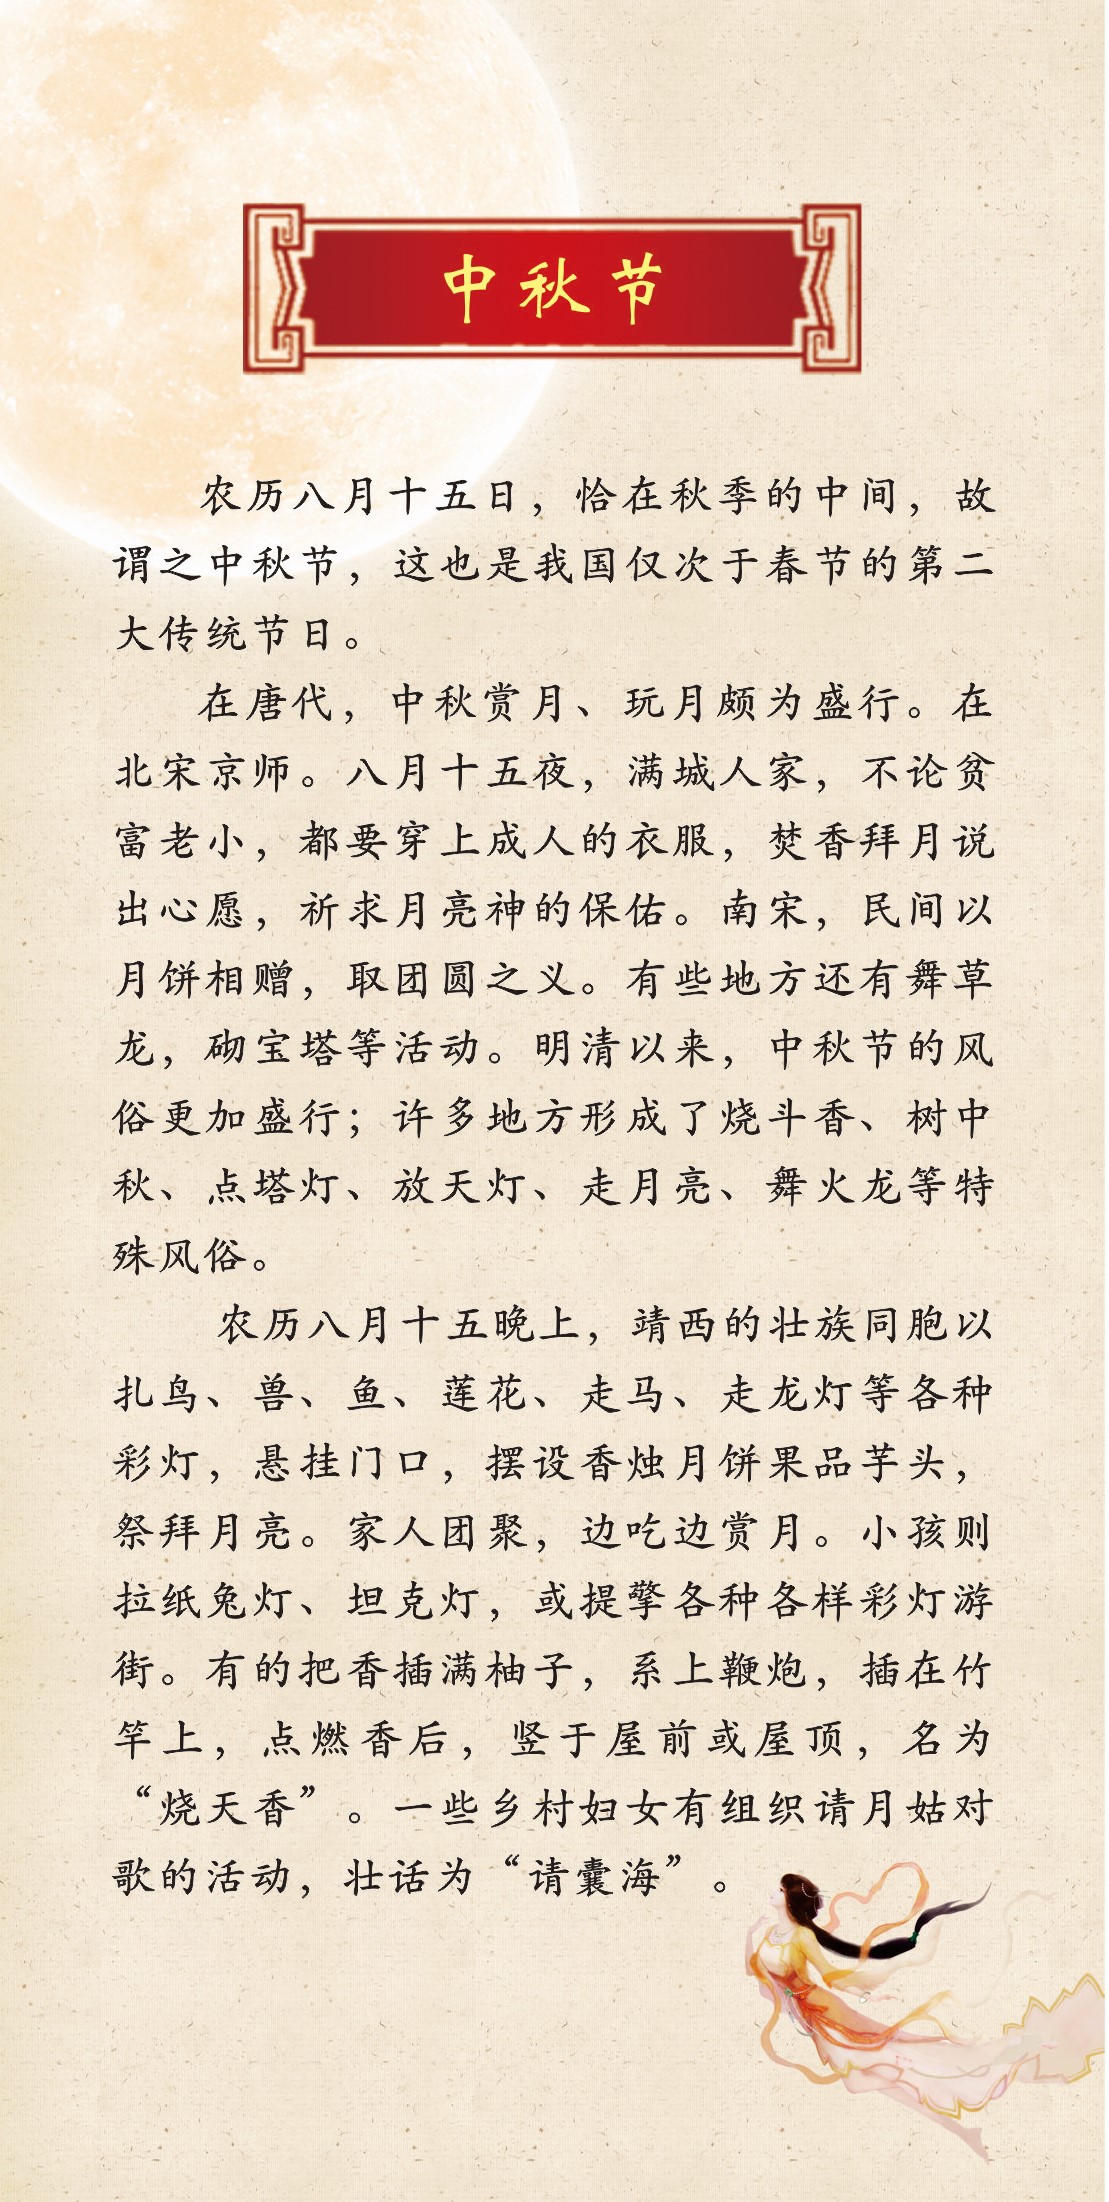 中秋节
农历八月十五日，恰在秋季的中间，故
谓之中秋节，这也是我国仅次于春节的第二
大传统节日。
在唐代，中秋赏月、玩月颇为盛行。在
北宋京师。八月十五夜，满城人家，不论贫
富老小，都要穿上成人的衣服，焚香拜月说
出心愿，祈求月亮神的保佑。南宋，民间以
月饼相赠，取团圆之义。有些地方还有舞草
龙，砌宝塔等活动。明清以来，中秋节的风
俗更加盛行；许多地方形成了烧斗香、树中
秋、点塔灯、放天灯、走月亮、舞火龙等特
殊风俗。
农历八月十五晚上，靖西的壮族同胞以
扎鸟、兽、鱼、莲花、走马、走龙灯等各种
彩灯，悬挂门口，摆设香烛月饼果品芋头，
祭拜月亮。家人团聚，边吃边赏月。小孩则
拉纸兔灯、坦克灯，或提擎各种各样彩灯游
街。有的把香插满柚子，系上鞭炮，插在竹
竿上，点燃香后，竖于屋前或屋顶，名为
“烧天香”。一些乡村妇女有组织请月姑对
歌的活动，壮话为“请囊海”。